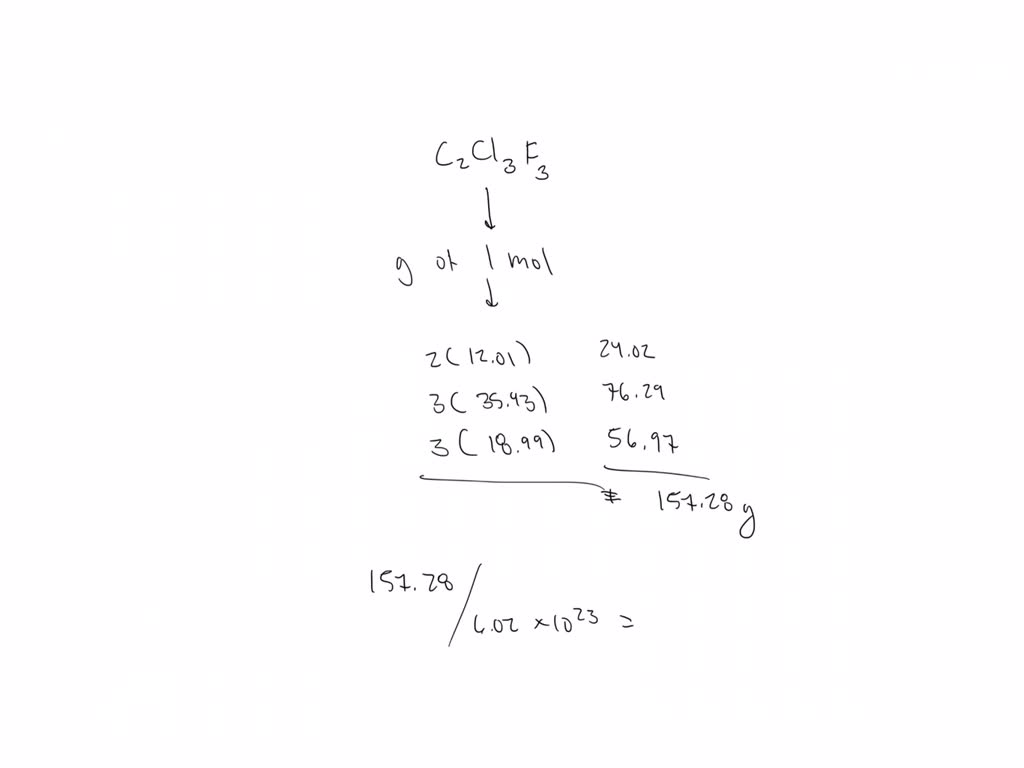 C₂Cl₃F₃
↓
g of 1 mol
↓
2(12.01) 24.02
3(35.43) 76.29
3(18.99) 56.97
= 157.28 g
157.28 / 6.02 × 10²³ =